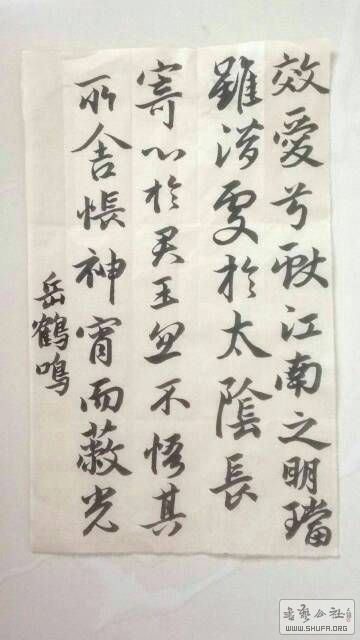 效愛兮獻江南之明璫
雖潛處於太陰長
寄心於君王忽不悟其
所舍悵神宵而蔽光
岳鶴鳴
书艺公社
WWW.SHUFA.ORG